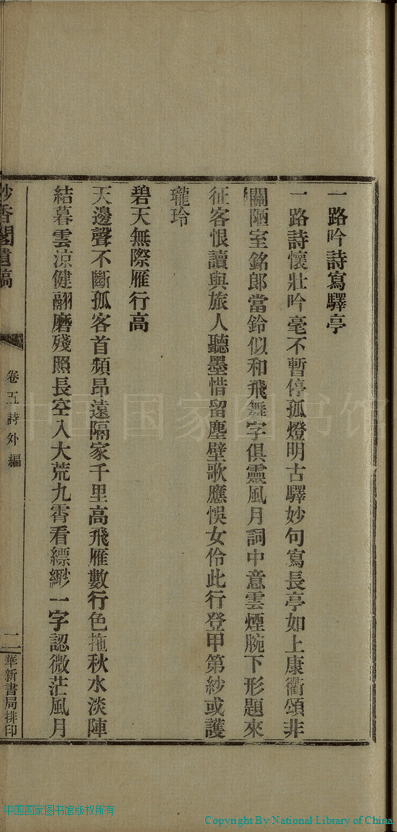 一路吟詩寫驛亭
一路詩懷壯吟毫不暫停孤燈明古驛妙句寫長亭如上康衢頌非
關陋室銘郎當鈴似和飛舞字俱靈風月詞中意雲煙腕下形題來
征客恨讀與旅人聽墨惜留塵壁歌應悞女伶此行登甲第紗或護
瓏玲
碧天無際雁行高
天邊聲不斷孤客首頻昂遠隔家千里高飛雁數行色拖秋水淡陣
結暮雲涼健翮磨殘照長空入大荒九霄看縹緲一字認微茫風月
妙香閣遺稿
卷五詩外編
二
華新書局排印
中国国家图书馆
中国国家图书馆版权所有
Copyright By National Library of China